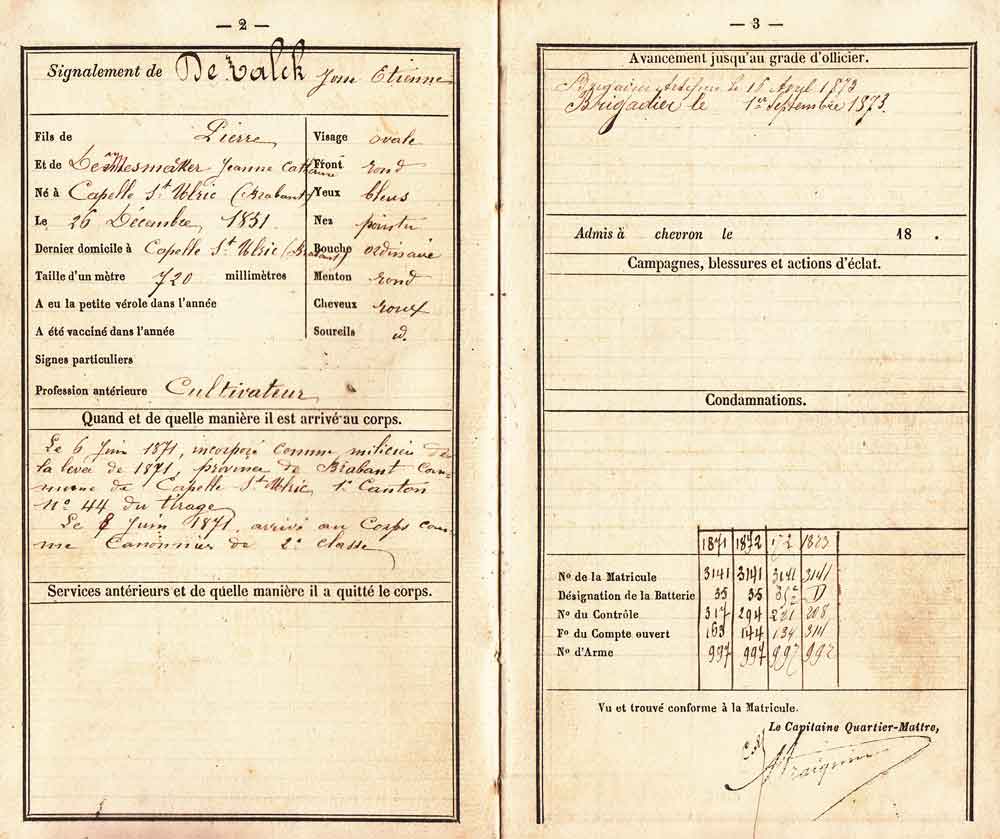 — 2 —
Signalement de De Valck Jean Etienne
Fils de Pierre
Et de Jeanne Catherine
Né à Capelle St Ulric (Brabant)
Le 26 Décembre 1851
Dernier domicile à Capelle St Ulric (Brabant)
Taille d'un mètre 720 millimètres
A eu la petite vérole dans l'année
A été vacciné dans l'année
Signes particuliers
Profession antérieure Cultivateur
Visage ovale
Front rond
Yeux bleus
Nez pointu
Bouche ordinaire
Menton rond
Cheveux roux
Sourcils id.
Quand et de quelle manière il est arrivé au corps.
Le 6 Juin 1871, incorporé comme milicien de
la levée de 1871, province de Brabant Com-
mune de Capelle St Ulric, 1r Canton
no 44 du tirage
Le 8 Juin 1871 arrivé au Corps com-
me Canonnier de 2e classe
Services antérieurs et de quelle manière il a quitté le corps.
— 3 —
Avancement jusqu'au grade d'officier.
Le 16 Avril 1873
Brigadier le 1er Septembre 1873.
Admis à chevron le 18 .
Campagnes, blessures et actions d'éclat.
Condamnations.
1871 1872 1873
No de la Matricule 3141 3141 3141 3141
Désignation de la Batterie 35 35
No du Contrôle 317 294 221 208
Fo du Compte ouvert 163 144 134 311
No d'Arme 997 997 997 997
Vu et trouvé conforme à la Matricule.
Le Capitaine Quartier-Maître,